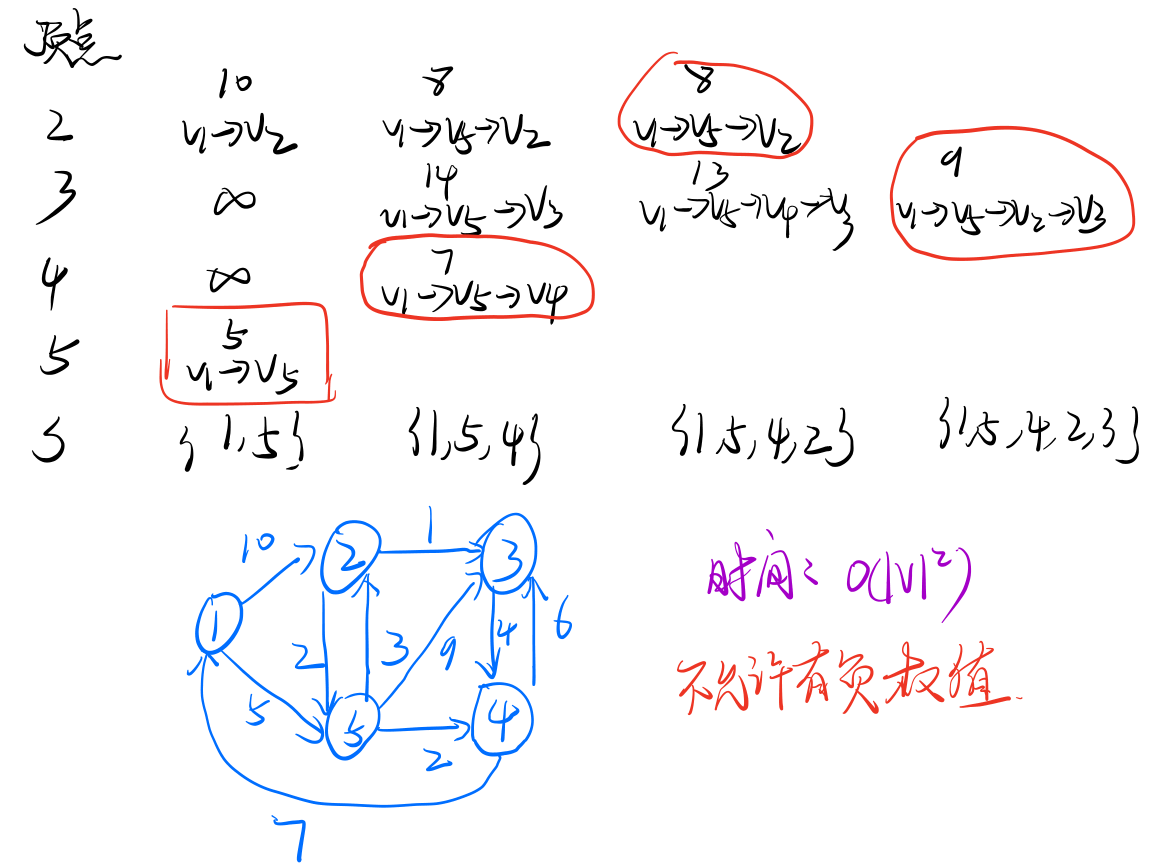 顶点
10 8 8
2 v1→v2 v1→v5→v2 v1→v5→v2
14 13 9
3 ∞ v1→v5→v3 v1→v5→v4→v3 v1→v5→v2→v3
7
4 ∞ v1→v5→v4
5
5 v1→v5
S {1,5} {1,5,4} {1,5,4,2} {1,5,4,2,3}
10 2 1 3
1 2 3 9 4 6
5 5 2 4
7
时间: O(|V|²)
不允许有负权值.